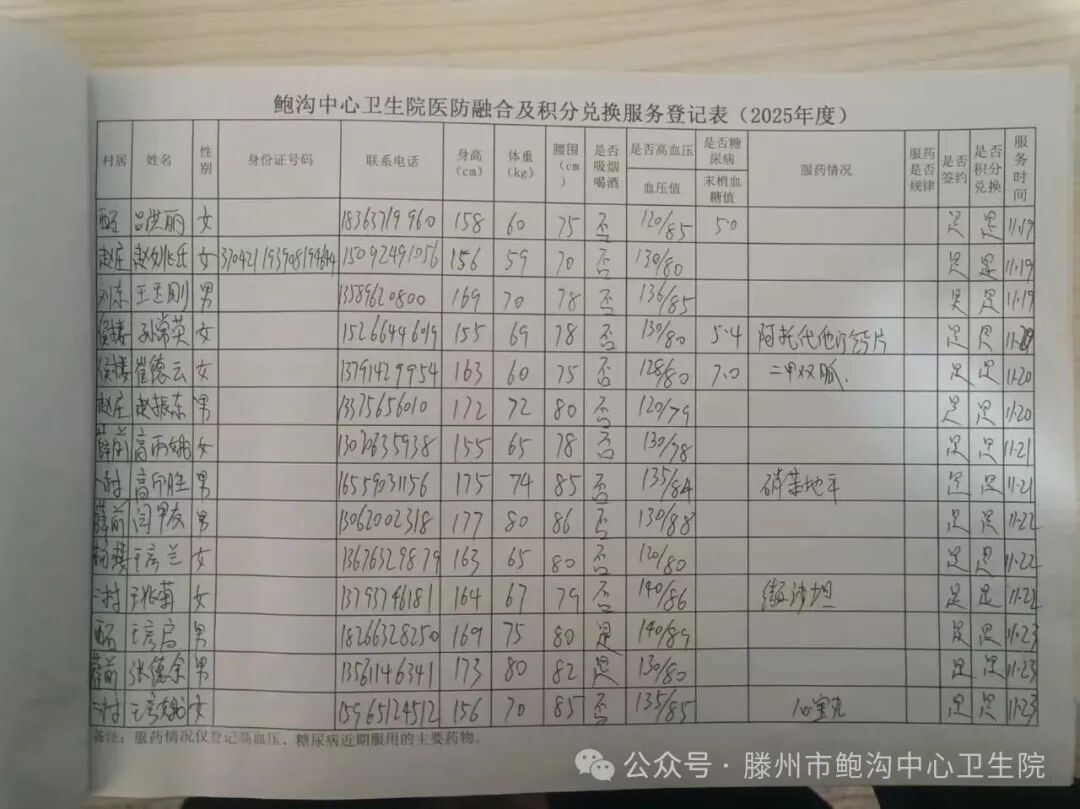 鲍沟中心卫生院医防融合及积分兑换服务登记表（2025年度）
村居 姓名 性别 身份证号码 联系电话 身高（cm） 体重（kg） 腰围（cm） 是否吸烟喝酒 是否高血压 血压值 是否糖尿病 末梢血糖值 服药情况 服药是否规律 是否签约 是否积分兑换 服务时间
吕洪丽 女 18363719960 158 60 75 否 120/85 5.0 是 是 11.19
赵庄 女 15092491056 156 59 70 否 130/80 是 是 11.19
刘东 王玉刚 男 13589620800 169 70 78 否 136/85 是 是 11.19
侯楼 孙常英 女 15266446019 155 69 78 否 130/80 5.4 阿托伐他汀钙片 是 是
侯楼 崔德云 女 13791429954 163 60 75 否 128/80 7.0 二甲双胍 是 是 11.20
赵庄 赵振东 男 13375656010 172 72 80 否 120/79 是 是 11.20
女 13070635938 155 65 78 否 130/78 是 是 11.21
高印胜 男 16559031156 175 74 85 否 135/84 硝苯地平 是 是 11.21
薛前 闫甲友 男 13062002318 177 80 86 否 130/88 是 是 11.22
杨楼 王彦兰 女 13676329879 163 65 80 否 120/80 是 是 11.22
王兆菊 女 13793746181 164 67 79 否 140/86 缬沙坦 是 是 11.22
王彦启 男 18266328250 169 75 80 是 140/89 是 是 11.23
薛前 张德余 男 13561146341 173 80 82 是 130/80 是 是 11.23
女 15965124512 156 70 85 否 135/85 心宝丸 是 是 11.23
备注：服药情况仅登记高血压、糖尿病近期服用的主要药物。
公众号·滕州市鲍沟中心卫生院